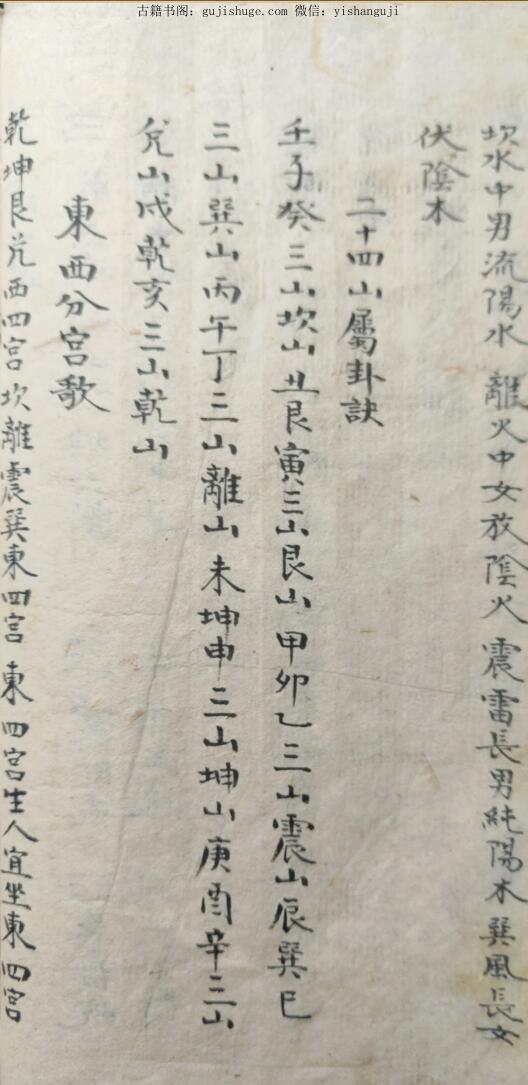 古籍书阁：gujishuge.com 微信：yishanguji
坎水中男流陽水 離火中女放陰火 震雷長男純陽木 巽風長女
伏陰木
二十四山屬卦訣
壬子癸三山坎山丑艮寅三山艮山甲卯乙三山震山辰巽巳
三山巽山丙午丁三山離山未坤申三山坤山庚酉辛三山
兌山戌乾亥三山乾山
東西分宮歌
乾坤艮兌西四宮坎離震巽東四宮 東四宮生人宜坐東四宮